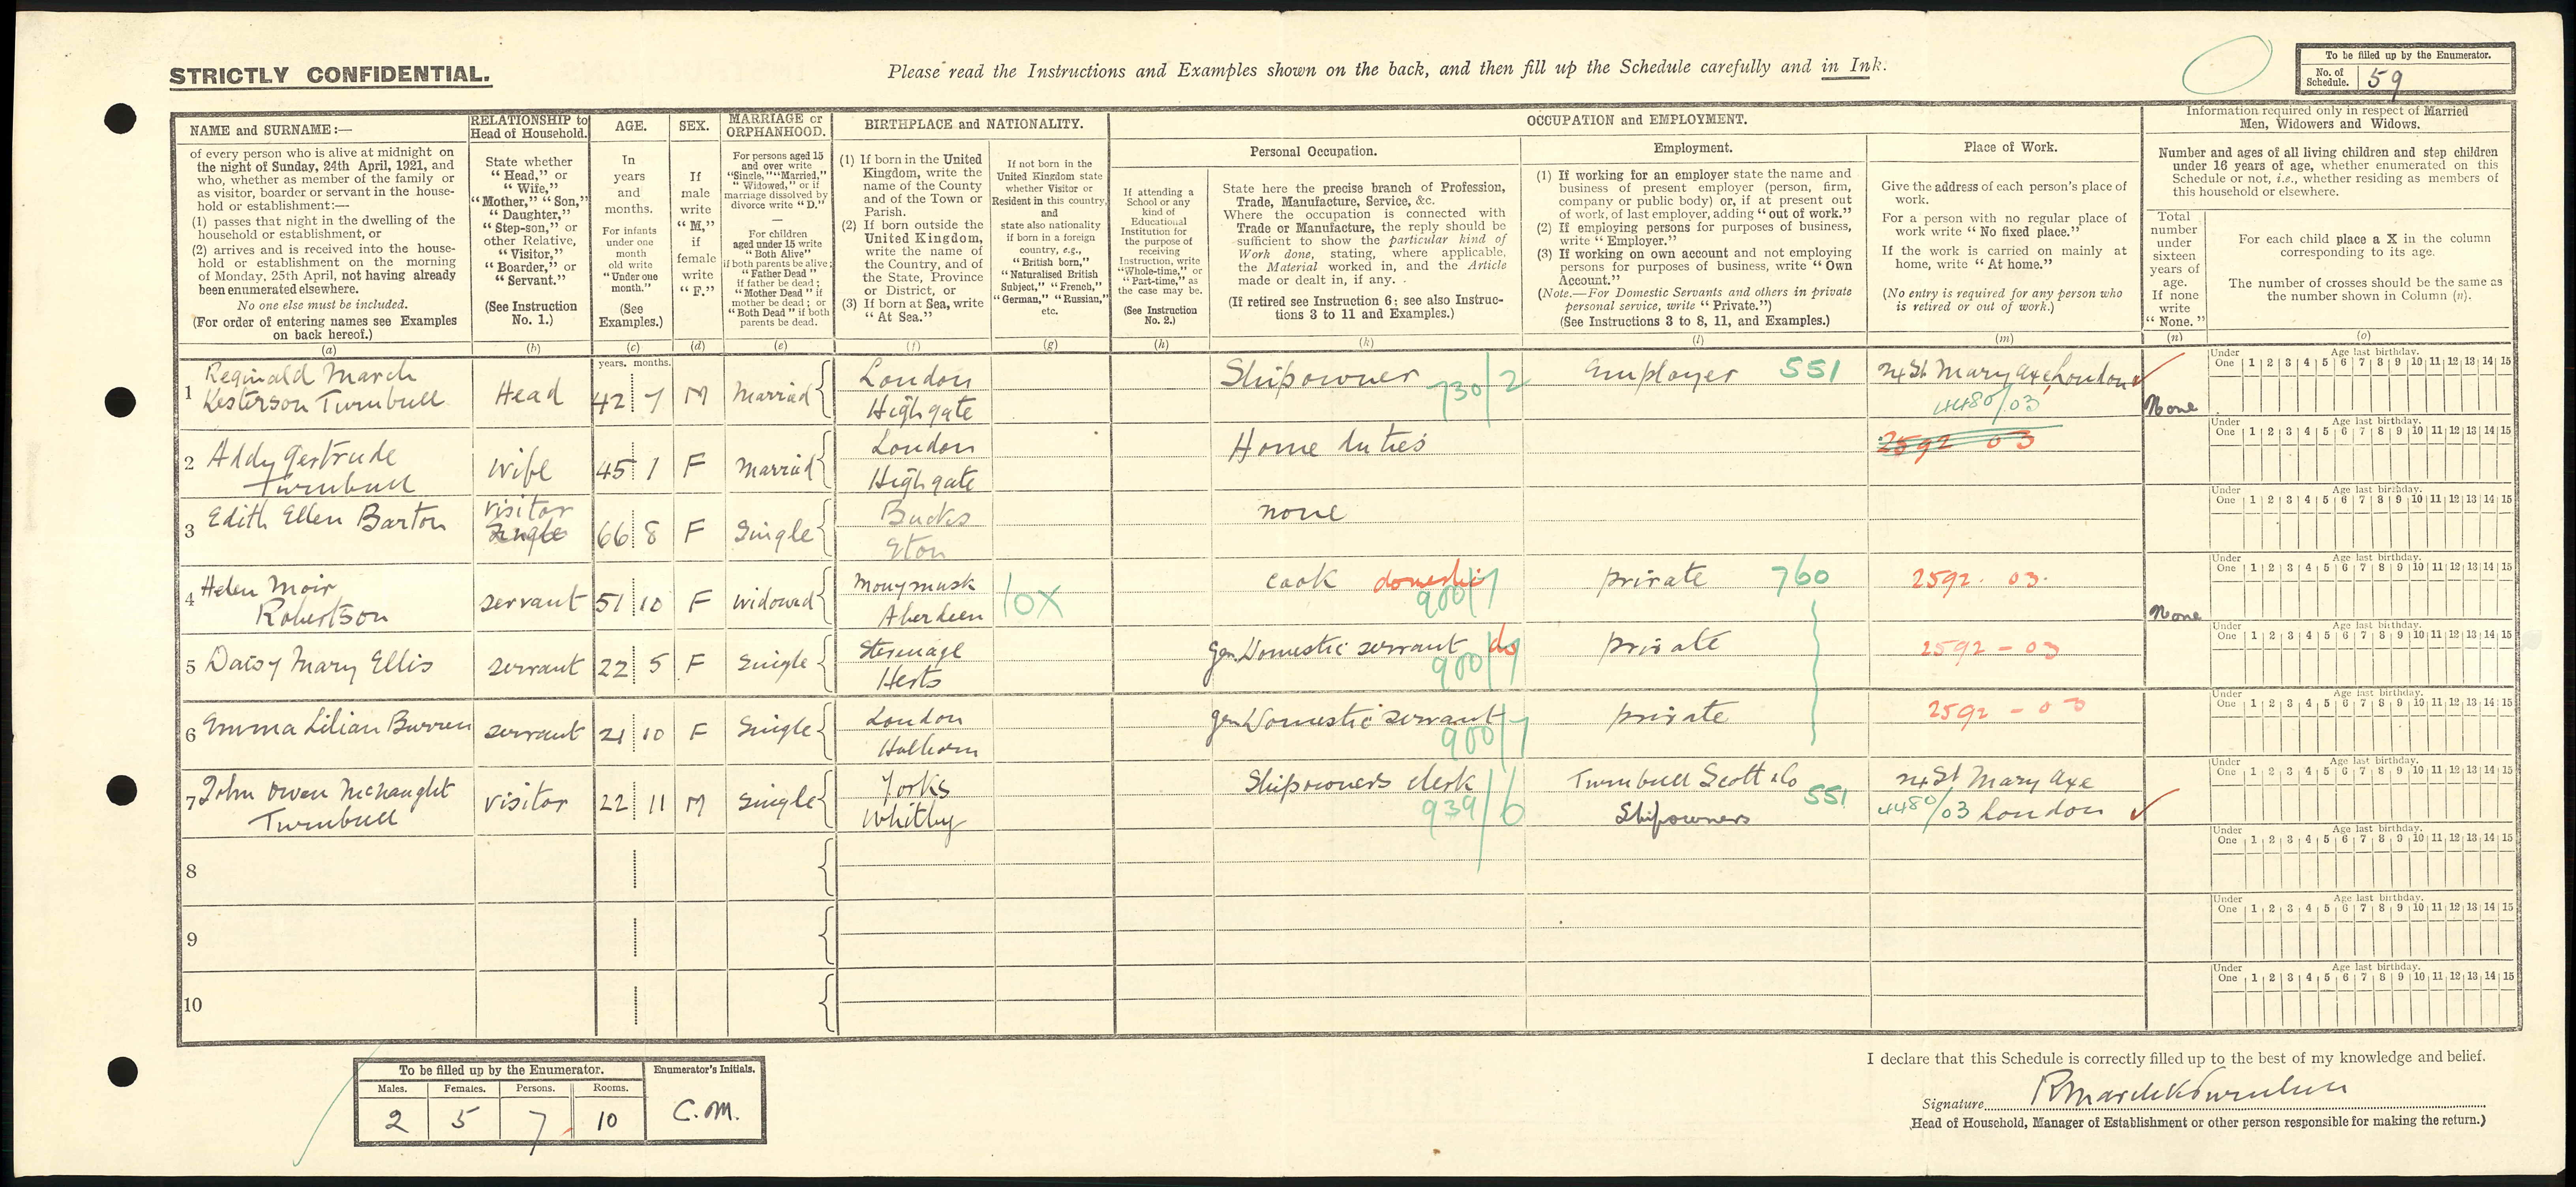 STRICTLY CONFIDENTIAL.
Please read the Instructions and Examples shown on the back, and then fill up the Schedule carefully and in Ink.
To be filled up by the Enumerator.
No. of Schedule. 59
NAME and SURNAME:—
of every person who is alive at midnight on
the night of Sunday, 24th April, 1921, and
who, whether as member of the family or
as visitor, boarder or servant in the house-
hold or establishment:—
(1) passes that night in the dwelling of the
household or establishment, or
(2) arrives and is received into the house-
hold or establishment on the morning
of Monday, 25th April, not having already
been enumerated elsewhere.
No one else must be included.
(For order of entering names see Examples
on back hereof.)
(a)
RELATIONSHIP to
Head of Household.
State whether
"Head," or
"Wife,"
"Mother," "Son,"
"Daughter,"
"Step-son," or
other Relative,
"Visitor,"
"Boarder," or
"Servant."
(See Instruction
No. 1.)
(b)
AGE.
In
years
and
months.
For infants
under one
month
old write
"Under one
month."
(See
Examples.)
(c)
SEX.
If
male
write
"M,"
if
female
write
"F."
(d)
MARRIAGE or
ORPHANHOOD.
For persons aged 15
and over write
"Single," "Married,"
"Widowed," or if
marriage dissolved by
divorce write "D."
—
For children
aged under 15 write
"Both Alive"
if both parents be alive;
"Father Dead"
if father be dead;
"Mother Dead" if
mother be dead; or
"Both Dead" if both
parents be dead.
(e)
BIRTHPLACE and NATIONALITY.
(1) If born in the United
Kingdom, write the
name of the County
and of the Town or
Parish.
(2) If born outside the
United Kingdom,
write the name of
the Country, and of
the State, Province
or District, or
(3) If born at Sea, write
"At Sea."
(f)
If not born in the
United Kingdom state
whether Visitor or
Resident in this country,
and
state also nationality
if born in a foreign
country, e.g.,
"British born,"
"Naturalised British
Subject," "French,"
"German," "Russian,"
etc.
(g)
OCCUPATION and EMPLOYMENT.
If attending a
School or any
kind of
Educational
Institution for
the purpose of
receiving
Instruction, write
"Whole-time," or
"Part-time," as
the case may be.
(See Instruction
No. 2.)
(h)
Personal Occupation.
State here the precise branch of Profession,
Trade, Manufacture, Service, &c.
Where the occupation is connected with
Trade or Manufacture, the reply should be
sufficient to show the particular kind of
Work done, stating, where applicable,
the Material worked in, and the Article
made or dealt in, if any.
(If retired see Instruction 6; see also Instruc-
tions 3 to 11 and Examples.)
(k)
Employment.
(1) If working for an employer state the name and
business of present employer (person, firm,
company or public body) or, if at present out
of work, of last employer, adding "out of work."
(2) If employing persons for purposes of business,
write "Employer."
(3) If working on own account and not employing
persons for purposes of business, write "Own
Account."
(Note.—For Domestic Servants and others in private
personal service, write "Private.")
(See Instructions 3 to 8, 11, and Examples.)
(l)
Place of Work.
Give the address of each person's place of
work.
For a person with no regular place of
work write "No fixed place."
If the work is carried on mainly at
home, write "At home."
(No entry is required for any person who
is retired or out of work.)
(m)
Information required only in respect of Married
Men, Widowers and Widows.
Number and ages of all living children and step children
under 16 years of age, whether enumerated on this
Schedule or not, i.e., whether residing as members of
this household or elsewhere.
Total
number
under
sixteen
years of
age.
If none
write
"None."
(n)
For each child place a X in the column
corresponding to its age.
The number of crosses should be the same as
the number shown in Column (n).
(o)
years. months.
Under One Age last birthday. 1 2 3 4 5 6 7 8 9 10 11 12 13 14 15
1 Reginald March
Kesterson Turnbull Head 42 7 M Married London
Highgate Shipowner 730/2 Employer 551 24 St Mary Axe London
4480/03 None
Under One Age last birthday. 1 2 3 4 5 6 7 8 9 10 11 12 13 14 15
2 Addy Gertrude
Turnbull Wife 45 1 F Married London
Highgate Home duties 2592 03
Under One Age last birthday. 1 2 3 4 5 6 7 8 9 10 11 12 13 14 15
3 Edith Ellen Barton visitor
Single 66 8 F Single Bucks
Eton none
Under One Age last birthday. 1 2 3 4 5 6 7 8 9 10 11 12 13 14 15
4 Helen Moir
Robertson servant 51 10 F Widowed Monymusk
Aberdeen 10X cook domestic 900/7 private 760 2592. 03. None
Under One Age last birthday. 1 2 3 4 5 6 7 8 9 10 11 12 13 14 15
5 Daisy Mary Ellis servant 22 5 F Single Stevenage
Herts gen Domestic servant do 900/7 private 2592 - 03
Under One Age last birthday. 1 2 3 4 5 6 7 8 9 10 11 12 13 14 15
6 Emma Lilian Burren servant 21 10 F Single London
Holborn gen Domestic servant 900/7 private 2592 - 03
Under One Age last birthday. 1 2 3 4 5 6 7 8 9 10 11 12 13 14 15
7 John Owen McNaught
Turnbull visitor 22 11 M Single Yorks
Whitby Shipowners clerk 939/6 Turnbull Scott & Co
Shipowners 551 24 St Mary Axe
4480/03 London
Under One Age last birthday. 1 2 3 4 5 6 7 8 9 10 11 12 13 14 15
8
Under One Age last birthday. 1 2 3 4 5 6 7 8 9 10 11 12 13 14 15
9
Under One Age last birthday. 1 2 3 4 5 6 7 8 9 10 11 12 13 14 15
10
To be filled up by the Enumerator.
Males. Females. Persons. Rooms.
2 5 7 10
Enumerator's Initials.
C.M.
I declare that this Schedule is correctly filled up to the best of my knowledge and belief.
Signature R March K Turnbull
Head of Household, Manager of Establishment or other person responsible for making the return.)